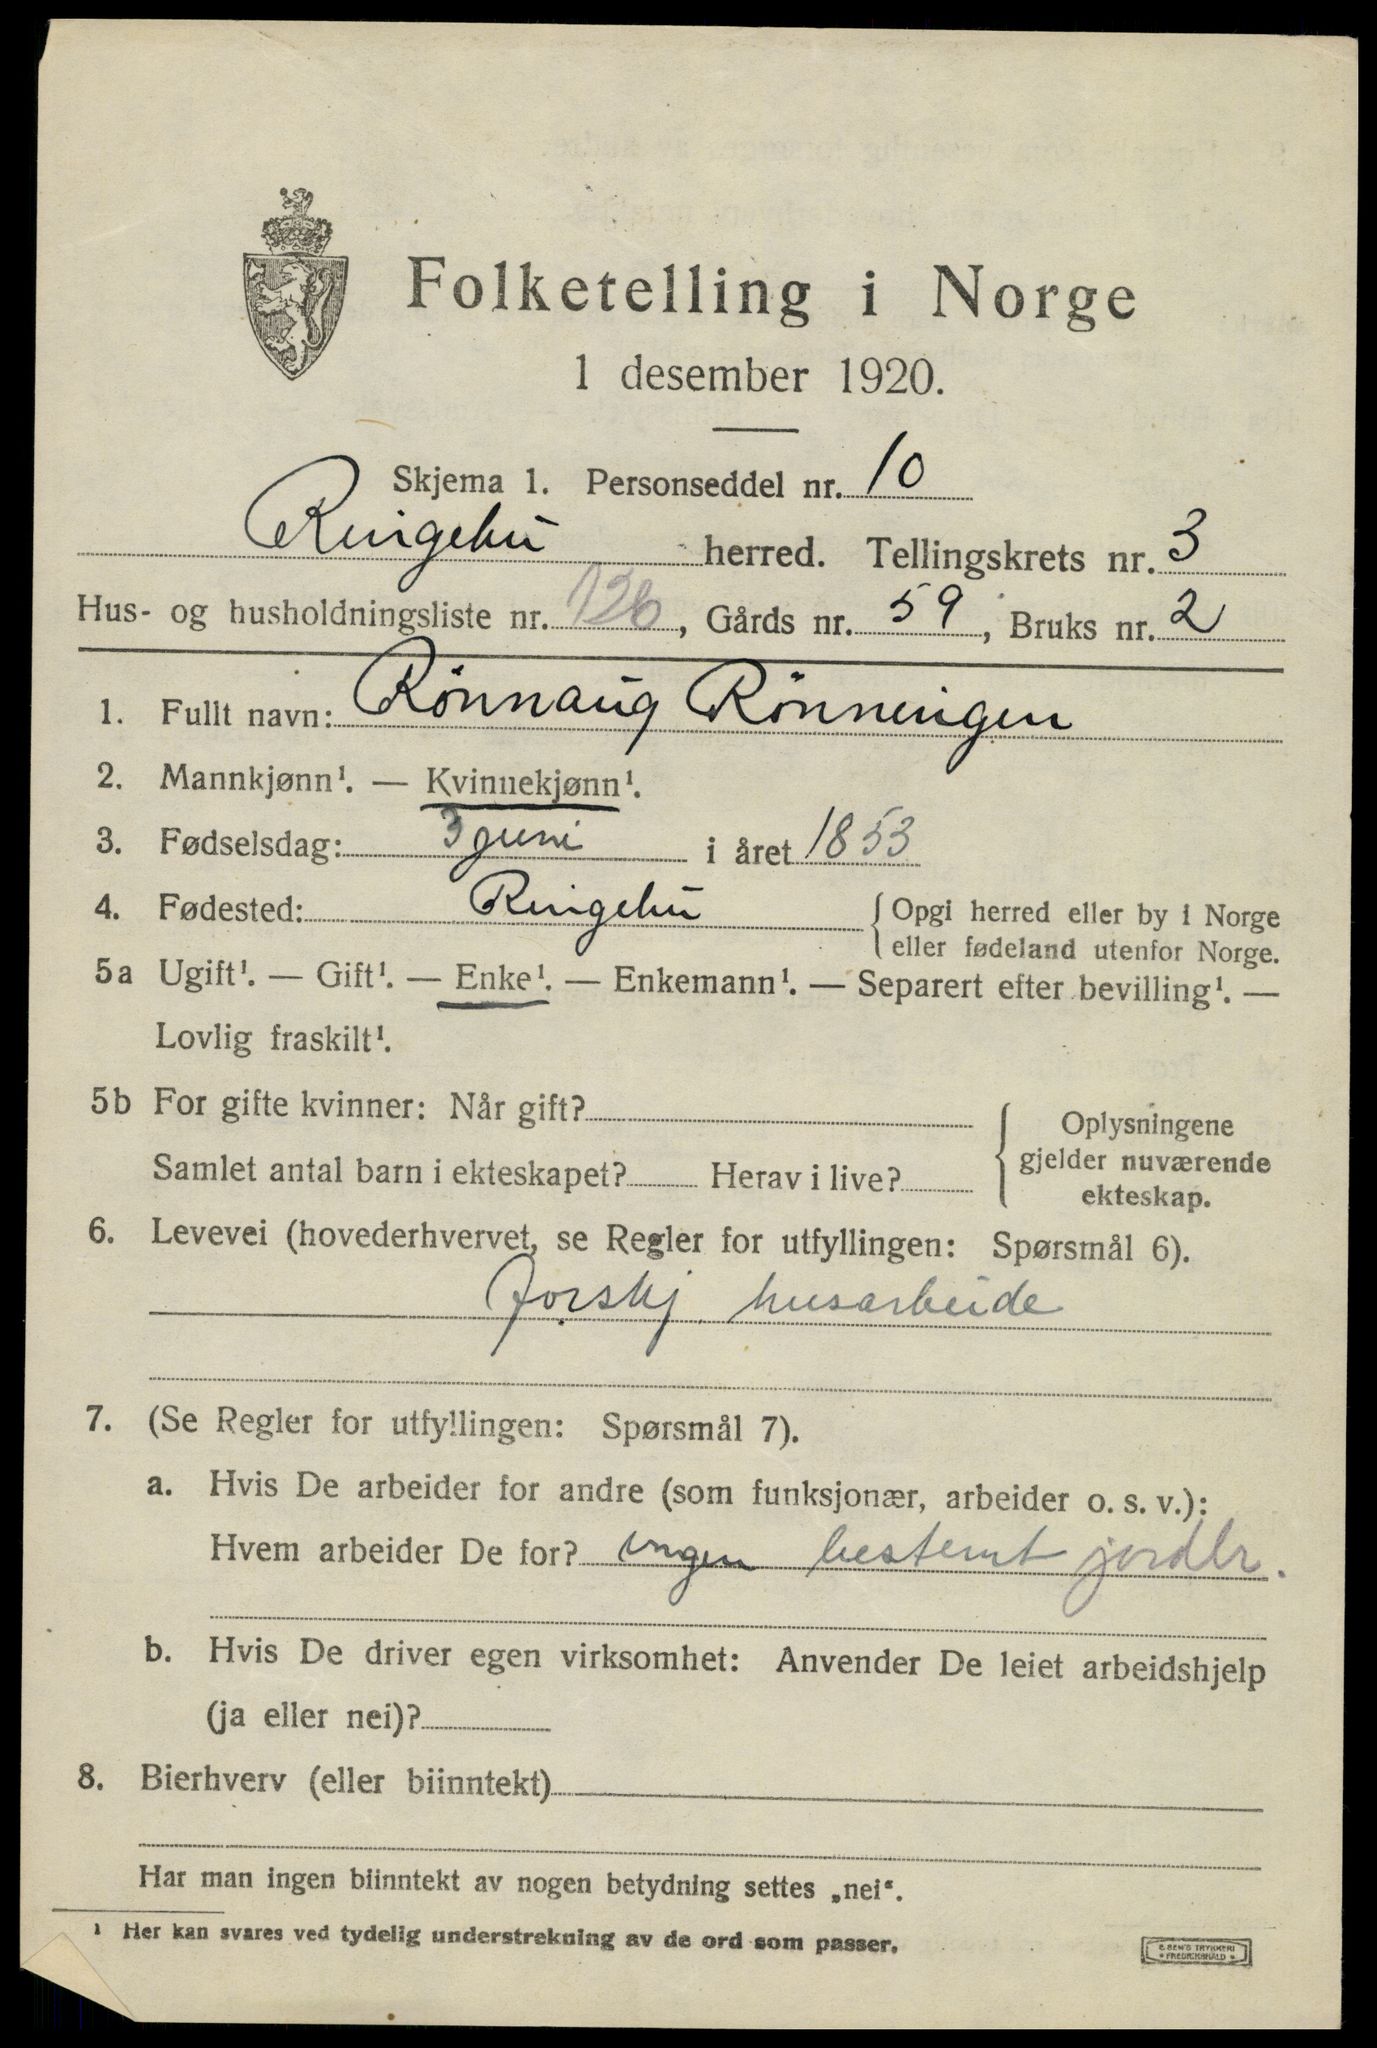 Folketelling i Norge
1 desember 1920.
Skjema 1. Personseddel nr. 10
Ringebu herred. Tellingskrets nr. 3
Hus- og husholdningsliste nr. 126, Gårds nr. 59, Bruks nr. 2
1. Fullt navn: Rönnaug Rönningen
2. Mannkjønn¹. — Kvinnekjønn¹.
3. Fødselsdag: 3 juni i året 1853
4. Fødested: Ringebu { Opgi herred eller by i Norge
eller fødeland utenfor Norge.
5a Ugift¹. — Gift¹. — Enke¹. — Enkemann¹. — Separert efter bevilling¹. —
Lovlig fraskilt¹.
5b For gifte kvinner: Når gift?
Samlet antal barn i ekteskapet? Herav i live?
{ Oplysningene
gjelder nuværende
ekteskap.
6. Levevei (hovederhvervet, se Regler for utfyllingen: Spørsmål 6).
forskj. husarbeide
7. (Se Regler for utfyllingen: Spørsmål 7).
a. Hvis De arbeider for andre (som funksjonær, arbeider o. s. v.):
Hvem arbeider De for? ingen bestemt jordbr.
b. Hvis De driver egen virksomhet: Anvender De leiet arbeidshjelp
(ja eller nei)?
8. Bierhverv (eller biinntekt)
Har man ingen biinntekt av nogen betydning settes „nei“.
¹ Her kan svares ved tydelig understrekning av de ord som passer.
E. SEM'S TRYKKERI
FREDRIKSHALD